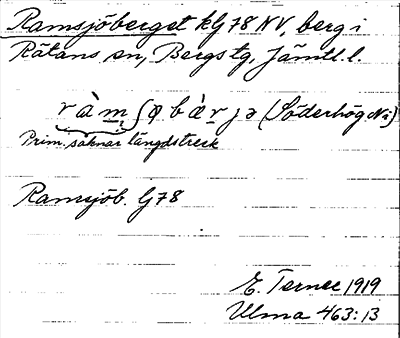 Ramsjöberget kg 78 NV, berg i
Rätans sn, Bergs tg, Jämtl. l.
r à m ʃ ø b à r j ə (Söderhög Nä)
Prim. saknar längdstreck
Ramsjöb. G78
E. Terner 1919
Ulma 463:13